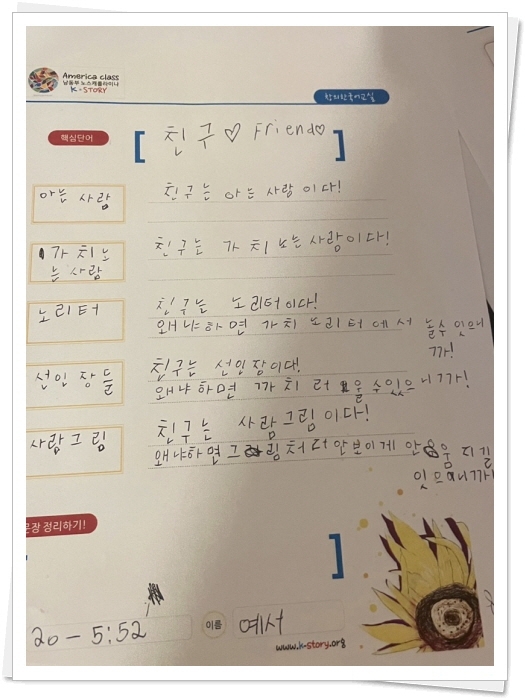 America class
남동부 노스캐롤라이나
K-STORY
창의한국어교실
핵심단어
[ 친구♡ Friend♡ ]
아는 사람
친구는 아는 사람이다!
가치노
는 사람
친구는 가치노는사람이다!
노리터
친구는 노리터이다!
왜냐하면 가치 노리터에서 놀수 잇으니
까!
선인장들
친구는 선인장이다!
왜냐하면 까치 러 울 수있으니까!
사람그림
친구는 사람그림이다!
왜냐하면그림처러안보이게 안 움지길
잇으니까!
문장 정리하기!
]
20-5:52
이름
예서
www.k-story.org